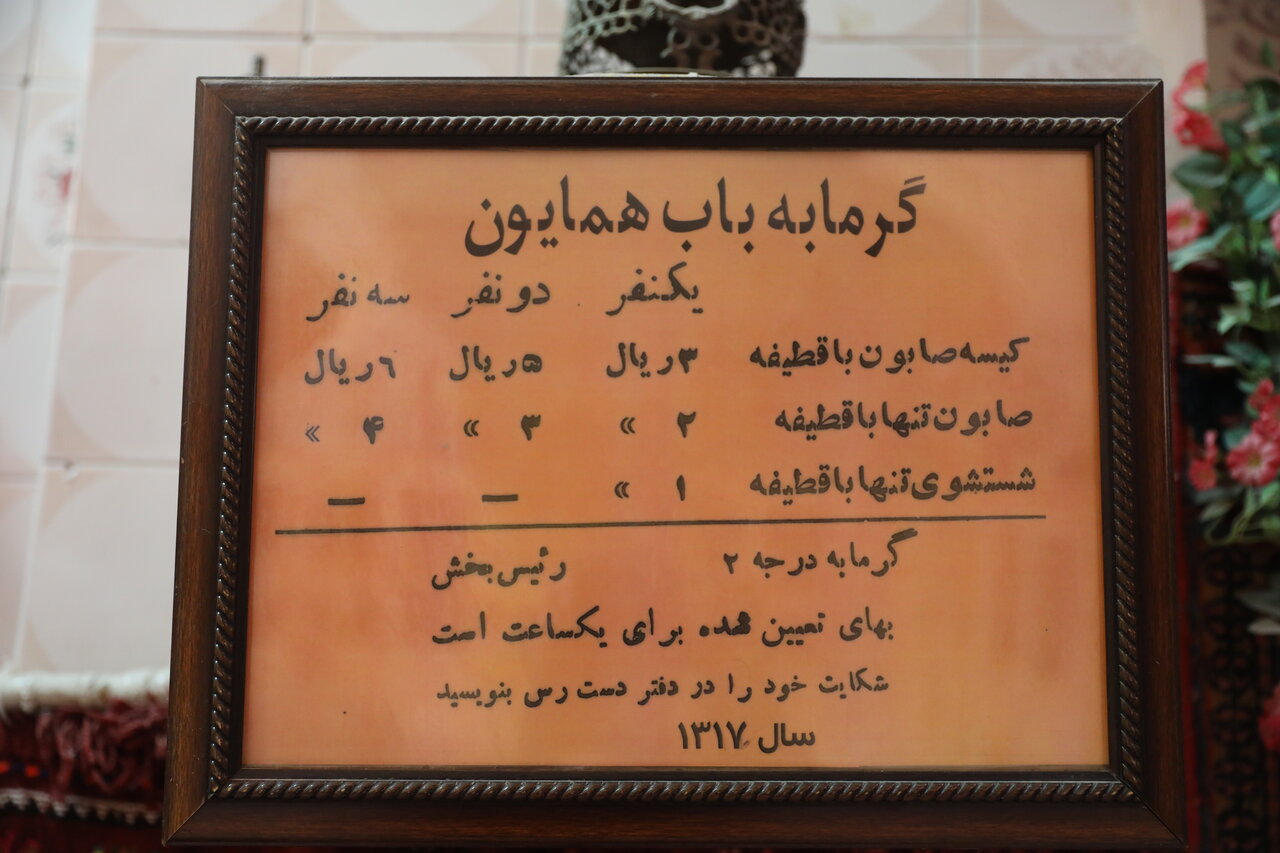 گرمابه باب همایون
یکنفر دو نفر سه نفر
کیسه صابون با قطیفه ۳ ریال ۵ ریال ۶ ریال
صابون تنها با قطیفه ۲ » ۳ » ۴ »
شستشوی تنها با قطیفه ۱ » — —
گرمابه درجه ۲ رئیس بخش
بهای تعیین شده برای یکساعت است
شکایت خود را در دفتر دست رس بنویسید
سال ۱۳۱۷